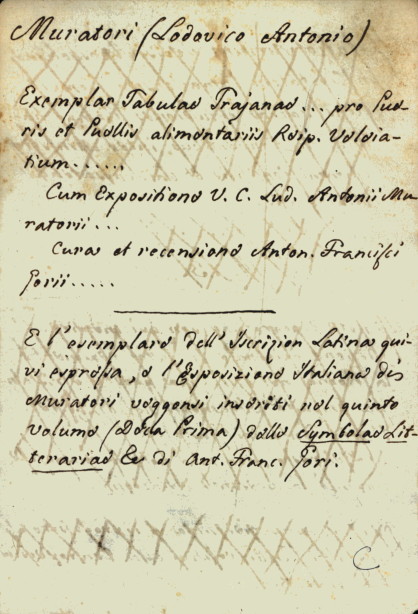 Muratori (Lodovico Antonio)
Exemplar Tabulae Trajanae... pro Pue-
ris et Puellis alimentariis Reip. Veleia-
tium......
Cum Expositione V. C. Lud. Antonii Mu-
ratorii...
Cura et recensione Anton. Francisci
Gorii.....
E l'esemplare dell'Iscrizion Latina qui-
vi espressa, e l'Esposizione Italiana del
Muratori veggonsi inseriti nel quinto
volume (Deca Prima) delle Symbolae Lit-
terariae &c di Ant. Franc. Gori.
C